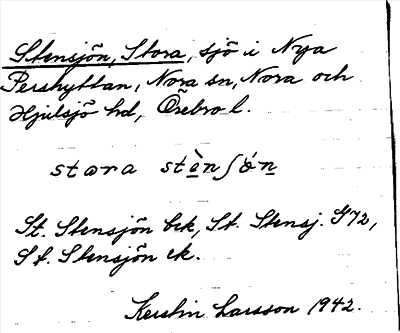 Stensjön, Stora, sjö i Nya
Pershyttan, Nora sn, Nora och
Hjulsjö hd, Örebro l.
stora stènʃón
St. Stensjön bek, St. Stensj. G72,
St. Stensjön ek.
Kerstin Larsson 1942.